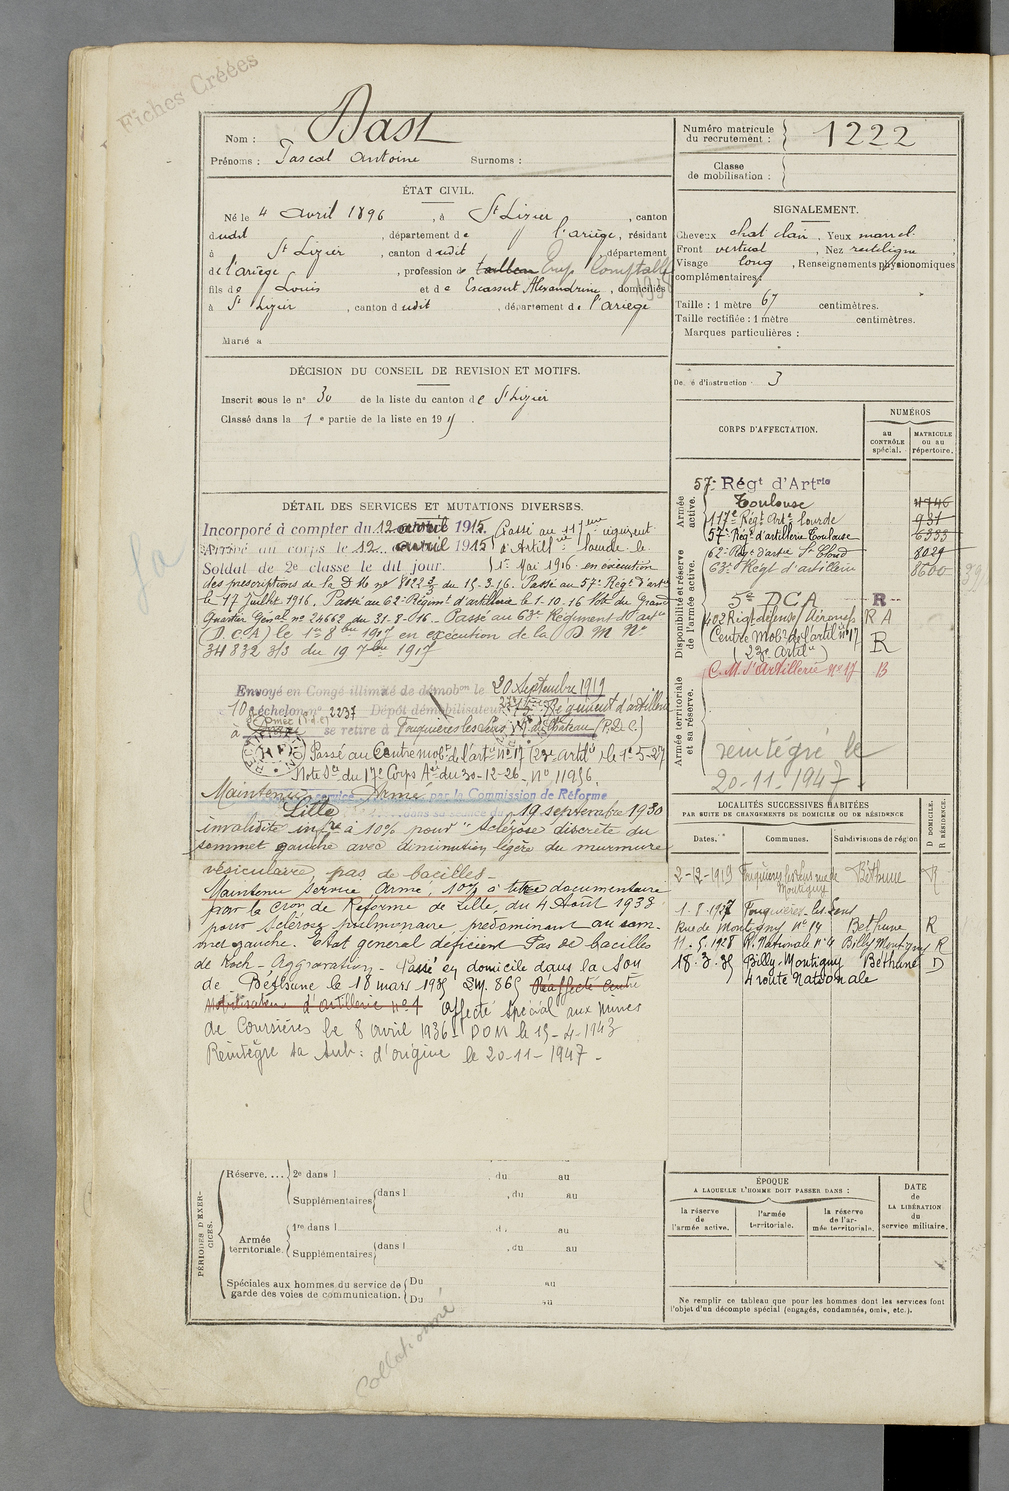 Fiches Créées
Nom : Dast
Prénoms : Pascal Antoine Surnoms :
Numéro matricule du recrutement : 1222
Classe de mobilisation :
ÉTAT CIVIL.
Né le 4 avril 1896, à St Lizier, canton
dudit, département de l'ariège, résidant
à St Lizier, canton dudit, département
de l'ariège, profession de Emp Comptable
1938
fils de Louis et de Escassut Alexandrine, domiciliés
à St Lizier, canton dudit, département de l'ariege
Marié à
SIGNALEMENT.
Cheveux chat clair, Yeux marr.
Front vertical, Nez rectiligne,
Visage long, Renseignements physionomiques
complémentaires :
Taille : 1 mètre 67 centimètres.
Taille rectifiée : 1 mètre centimètres.
Marques particulières :
DÉCISION DU CONSEIL DE REVISION ET MOTIFS.
Inscrit sous le n° 30 de la liste du canton de St Lizier
Classé dans la 1e partie de la liste en 19
Degré d'instruction : 3
CORPS D'AFFECTATION.
NUMÉROS
au CONTRÔLE spécial.
MATRICULE ou au répertoire.
Armée active.
57e Régt d'Artrie
Toulouse
117e Régt Arte Lourde 931
57e Régt d'artillerie Toulouse 6333
62e Régt d'artie St Cloud 8029
63e Régt d'artillerie 8600
Disponibilité et réserve de l'armée active.
5e DCA R
402 Régt défense Aérienne R A
Centre Mobr de l'artie n°17 R
(23e Artie)
C.M. d'Artillerie N° 17 B
Armée territoriale et sa réserve.
réintégré le
20-11-1947.
DÉTAIL DES SERVICES ET MUTATIONS DIVERSES.
Incorporé à compter du 12 avril 1915. Passé au 117eme régiment
Arrivé au corps le 12 avril 1915 d'Artillrie lourde le
Soldat de 2e classe le dit jour. 1er Mai 1916 en exécution
des prescriptions de la D M n° 8022 3/3 du 15.3.16. Passé au 57e Régt d'artie
le 17 juillet 1916. Passé au 62e Régimt d'artillerie le 1-10-16 Note du Grand
Quartier Génal n° 24662 du 31-8-016. Passé au 63e Régiment d'artie
(D.C.A) le 1er 8bre 1917 en exécution de la D M N°
34832 3/3 du 19 7bre 1917
Envoyé en Congé illimité de démobon le 20 Septembre 1919
10 échelon n° 2237 Dépôt démobilisateur Régiment d'artillerie
se retire à Fouquières les Lens, R. du Château (P. de C.)
Passé au Centre mobr de l'artie n° 17 (23e artie) le 1er 5-27
Note Sce du 17e Corps Aée du 30-12-26. N° 11956.
Maintenu service Armé par la Commission de Réforme
Lille dans sa séance du 19 septembre 1930
invalidité infre à 10% pour "Sclérose discrète du
sommet gauche avec diminution légère du murmure
vésiculaire, pas de bacilles -
Maintenu service Armé, 10% à titre documentaire
par la Cron de Réforme de Lille, du 4 Août 1938
pour sclérose pulmonaire, prédominant au som-
met gauche. Etat general déficient Pas de bacilles
de Koch - Aggravation - Passé en domicile dans la Son
de Béthune le 18 mars 1935 Réaffecté Centre
Mobilisateur d'artillerie n° 1 Affecté Spécial aux Mines
de Courrières le 8 avril 1936. DOM le 15-4-1943
Réintègre sa Sub: d'origine le 20-11-1947 -
LOCALITÉS SUCCESSIVES HABITÉES
PAR SUITE DE CHANGEMENTS DE DOMICILE OU DE RÉSIDENCE
Dates. Communes. Subdivisions de région
D DOMICILE. R RÉSIDENCE.
2-12-1919 Fouquières les Lens rue de Montigny Béthune R
1-8-1927 Fouquières-les-Lens
Rue de Montigny N° 14 Bethune R
11-5-1928 R. Nationale n° 4 Billy Montigny R
18.3.35 Billy-Montigny Béthune D
4 route Nationale
PÉRIODES D'EXERCICES.
Réserve.... 2e dans l du au
Supplémentaires dans l, du au
Armée territoriale. 1re dans l du au
Supplémentaires dans l, du au
Spéciales aux hommes du service de garde des voies de communication. Du au
Du au
ÉPOQUE
A LAQUELLE L'HOMME DOIT PASSER DANS :
la réserve de l'armée active.
l'armée territoriale.
la réserve de l'armée territoriale.
DATE de LA LIBÉRATION du service militaire.
Ne remplir ce tableau que pour les hommes dont les services font
l'objet d'un décompte spécial (engagés, condamnés, omis, etc.).
Collationné